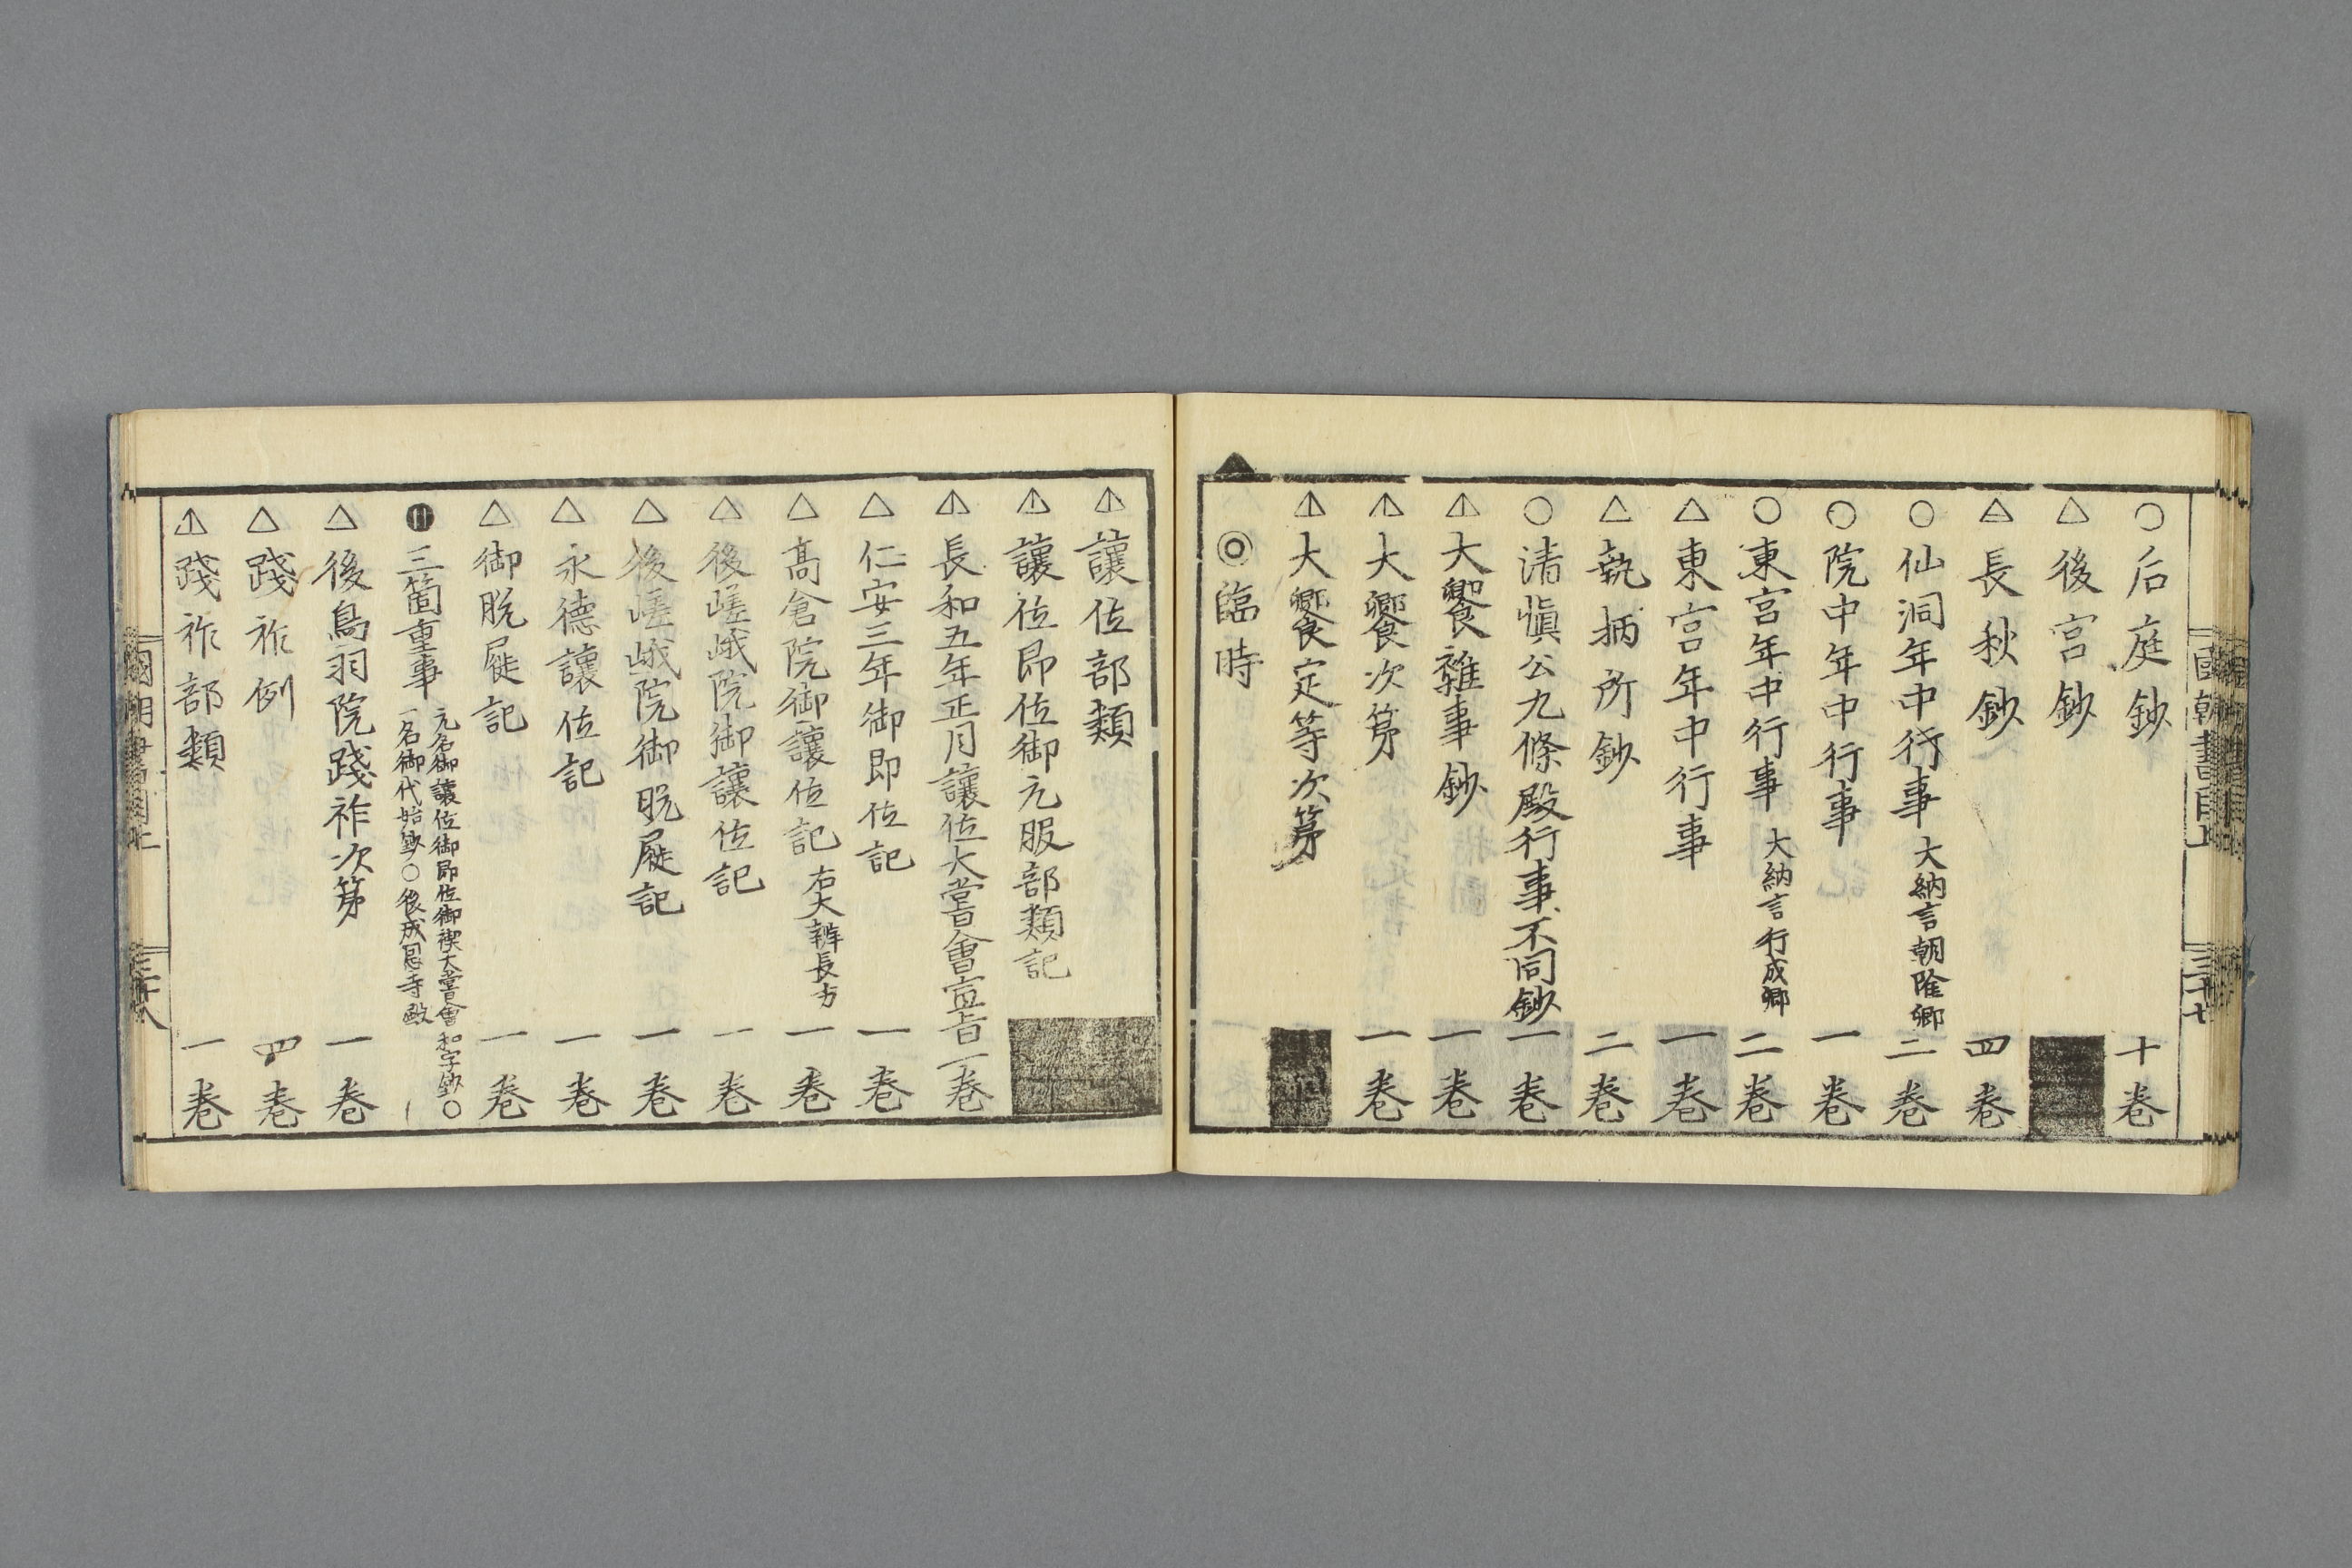 國朝書目上
三十七
○后庭鈔 十卷
△後宮鈔
△長秋鈔 四卷
○仙洞年中行事 大納言朝隆卿 二卷
○院中年中行事 一卷
○東宮年中行事 大納言行成卿 二卷
△東宮年中行事 一卷
△執柄所鈔 二卷
○清愼公九條殿行事不同鈔 一卷
大饗雜事鈔 一卷
大饗次第 一卷
大饗定等次第
◎臨時
讓位部類
讓位即位御元服部類記
長和五年正月讓位大嘗會宣旨 一卷
△仁安三年御即位記 一卷
△高倉院御讓位記 右大辨長方 一卷
△後嵯峨院御讓位記 一卷
△後嵯峨院御脱屣記 一卷
△永德讓位記 一卷
△御脱屣記 一卷
三箇重事 元名御讓位御即位御禊大嘗會和字鈔○
一名御代始鈔○後成恩寺殿
△後鳥羽院踐祚次第 一卷
△踐祚例 四卷
踐祚部類 一卷
國朝書目上
三十八